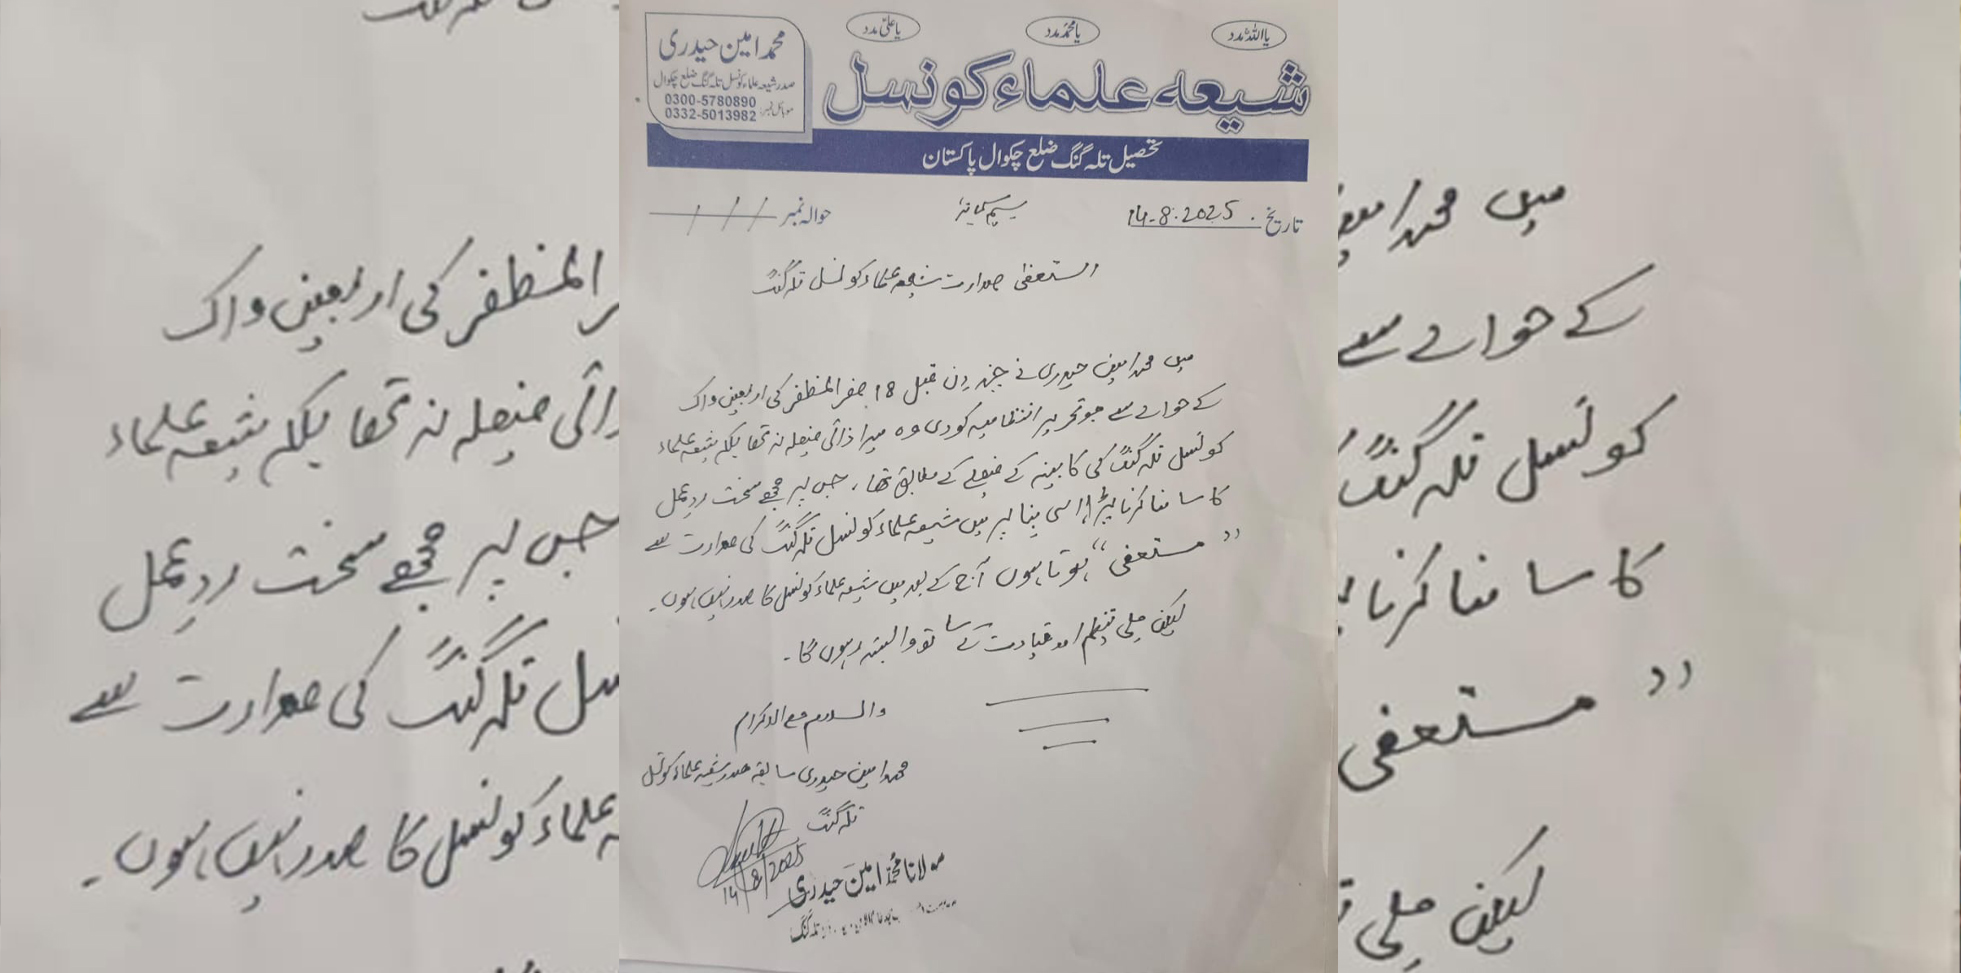 یا اللہ مدد
یا محمد مدد
یا علی مدد
شیعہ علماء کونسل
محمد امین حیدری
صدر شیعہ علماء کونسل تلہ گنگ ضلع چکوال
موبائل نمبر: 0300-5780890
0332-5013982
تحصیل تلہ گنگ ضلع چکوال پاکستان
تاریخ 14-8-2025
حوالہ نمبر
استعفیٰ صدارت شیعہ علماء کونسل تلہ گنگ
میں محمد امین حیدری نے چند دن قبل 18 صفر المظفر کی اربعین واک
کے حوالے سے جو تحریر انتظامیہ کو دی وہ میرا ذاتی فیصلہ نہ تھا بلکہ شیعہ علماء
کونسل تلہ گنگ کی کابینہ کے فیصلے کے مطابق تھا، جس پر مجھے سخت ردِ عمل
کا سامنا کرنا پڑا، اسی بنا پر میں شیعہ علماء کونسل تلہ گنگ کی صدارت سے
"مستعفی" ہوتا ہوں آج کے بعد میں شیعہ علماء کونسل کا صدر نہیں ہوں۔
لیکن ملی تنظیم اور قیادت کے ساتھ وابستہ رہوں گا۔
والسلام مع الاکرام
محمد امین حیدری سابقہ صدر شیعہ علماء کونسل
تلہ گنگ
14/8/2025
مولانا محمد امین حیدری
تلہ گنگ